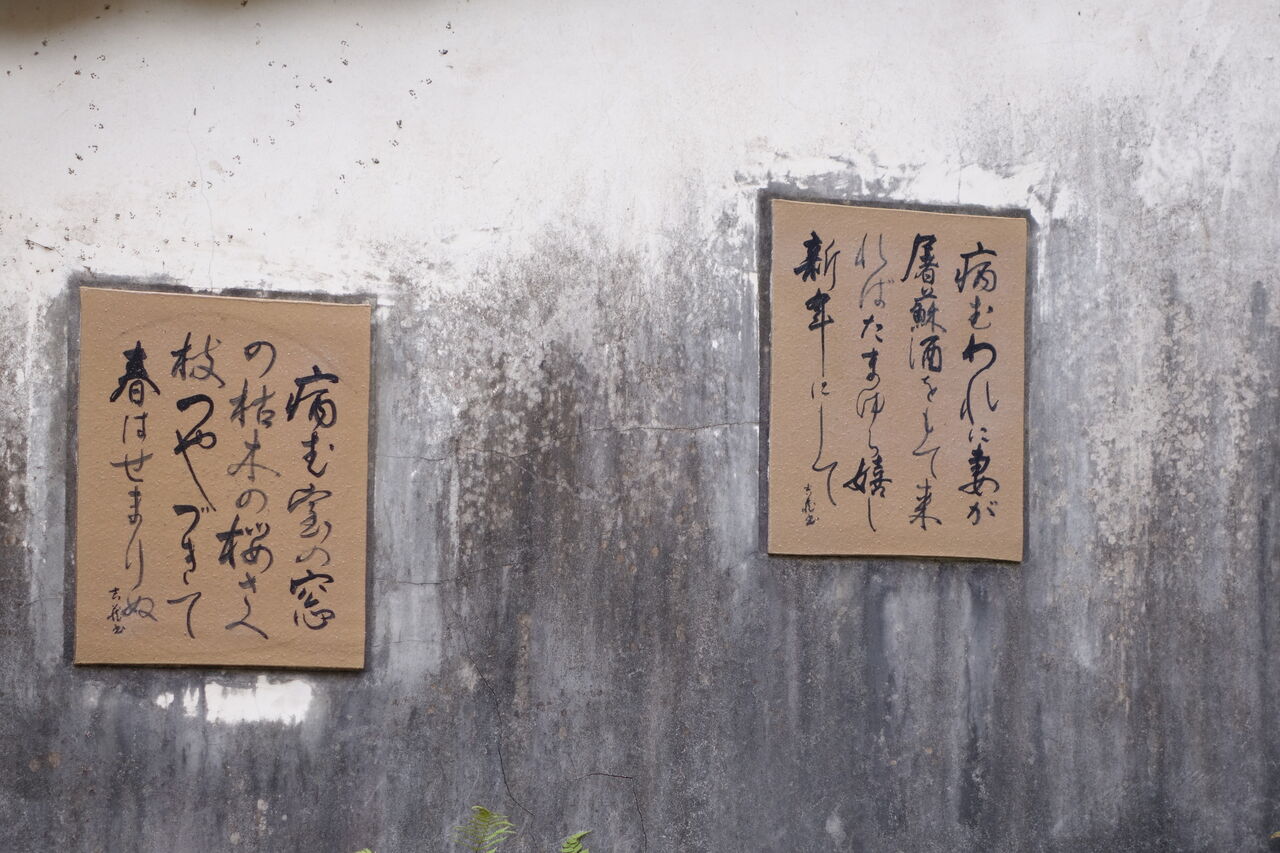 病むわれに妻が
屠蘇酒をもて来
ればたまゆら嬉し
新年にして
病む室の窓
の枯木の桜さへ
枝つやづきて
春はせまりぬ